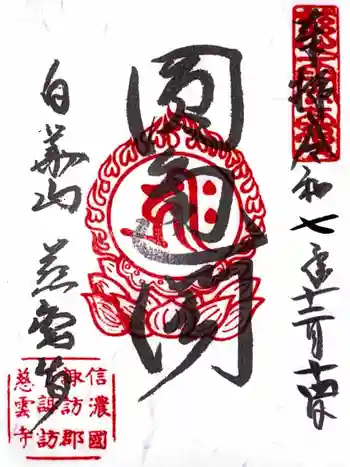 奉拝 令和七年
圓通閣
白華山 慈雲寺
信濃國
諏訪郡
諏訪
慈雲寺